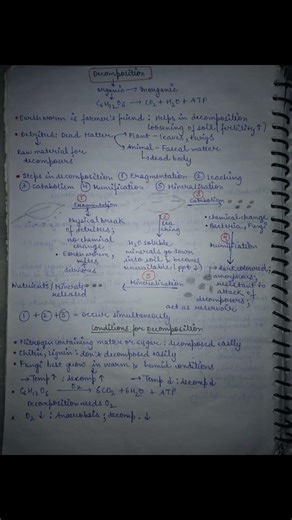 Decomposition
organic → Inorganic
C6H12O6 → CO2 + H2O + ATP
• Earthworm is farmer's friend : helps in decomposition
loosening of soil (fertility↑)
• Detritus : Dead Matter → Plant - leaves, twigs
→ Animal - Faecal matter
Raw material for
→ dead body
decomposers
• Steps in decomposition ① Fragmentation ② Leaching
③ Catabolism ④ Humification ⑤ Mineralisation
①
Fragmentation
③
Catabolism
Physical break
of detritus;
no chemical
change
• Earthworm,
mites
②
Lea
ching
H2O soluble
minerals go down
into soil & become
unavailable (ppt↓)
• chemical change
• Bacteria, Fungi
④
Humification
→ dark coloured,
amorphous,
resistant to
attack of
decomposers,
act as reservoir
⑤
Mineralisation
Nutrients/Minerals
released
① + ② + ③ → occur simultaneously
Conditions for Decomposition
• Nitrogen containing matter or sugar : decomposed easily
• Chitin, lignin : don't decomposed easily
• Fungi best grow in warm & humid conditions
→ Temp↑ : decomp↑ → Temp↓ : decomp↓
• C6H12O6 O2→ 6CO2 + 6H2O + ATP
Decomposition needs O2
• O2 ↓ : Anaerobosis ; decomp. ↓